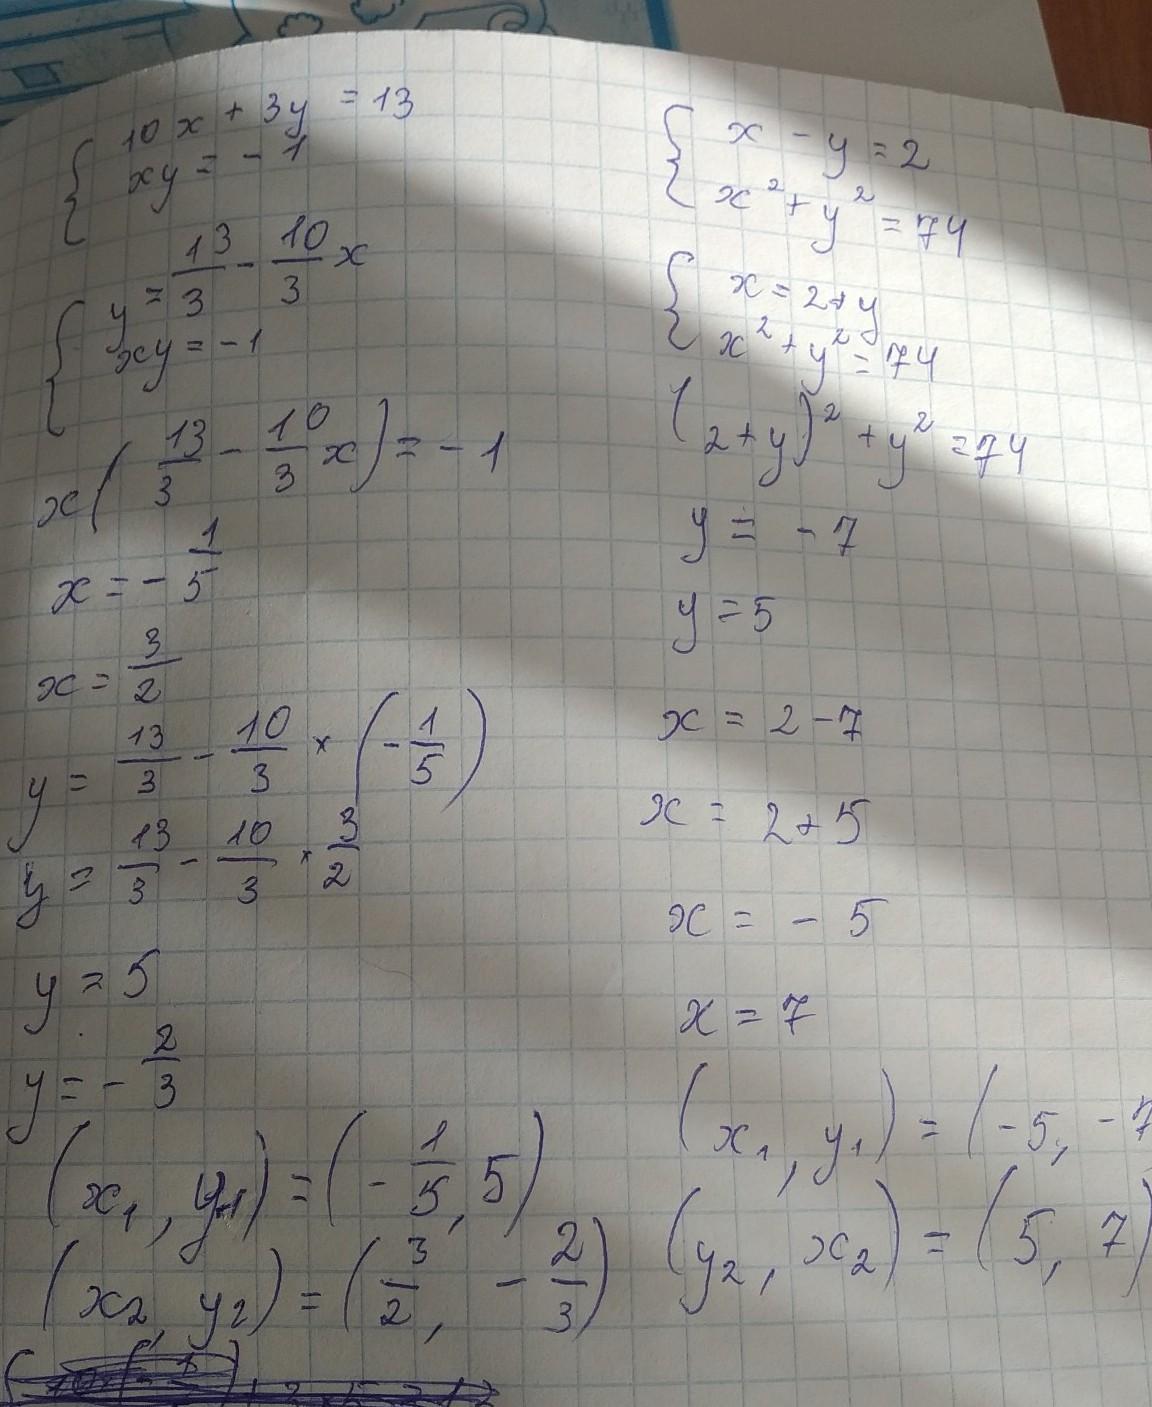 { 10x + 3y = 13
xy = - 1
{ y = 13/3 - 10/3 x
xy = -1
x( 13/3 - 10/3 x ) = - 1
x = - 1/5
x = 3/2
y = 13/3 - 10/3 × ( - 1/5 )
y = 13/3 - 10/3 × 3/2
y = 5
y = - 2/3
( x₁ , y₁ ) = ( - 1/5 , 5 )
( x₂ , y₂ ) = ( 3/2 , - 2/3 )
{ x - y = 2
x² + y² = 74
{ x = 2+y
x² + y² = 74
( 2 + y )² + y² = 74
y = - 7
y = 5
x = 2 - 7
x = 2 + 5
x = - 5
x = 7
( x₁ , y₁ ) = ( -5, -7
( y₂ , x₂ ) = ( 5, 7 )